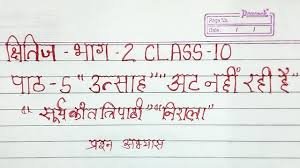 Page No.
Date
क्षितिज - भाग - 2 CLASS-10
पाठ-5 "उत्साह" "अट नहीं रही है"
"सूर्यकांत त्रिपाठी" "निराला"
प्रश्न अभ्यास